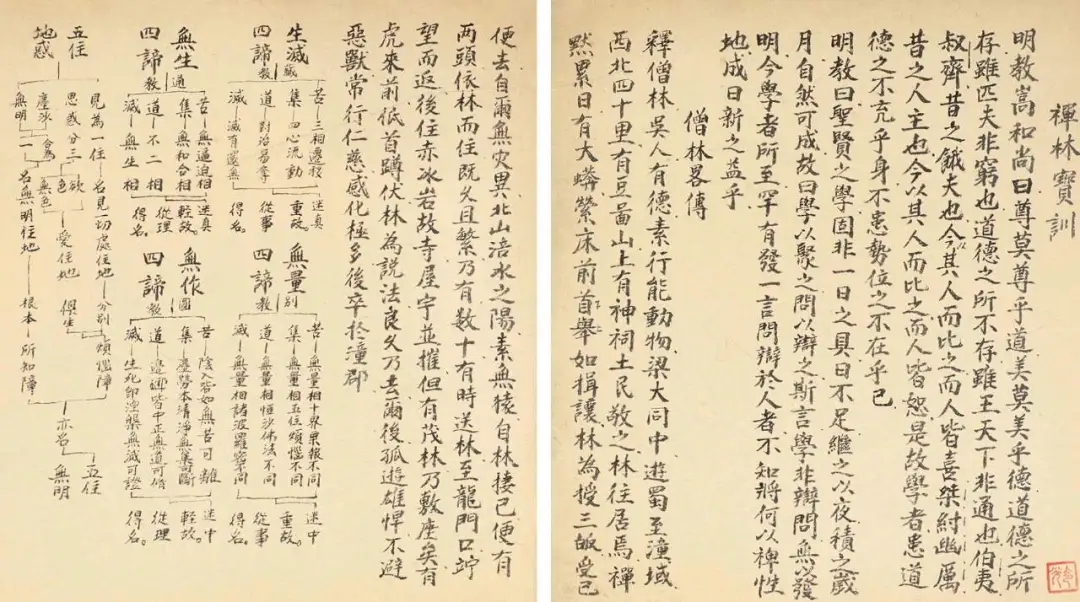 禪林寶訓
明教嵩和尚曰尊莫尊乎道美莫美乎德道德之所
存雖匹夫非窮也道德之所不存雖王天下非通也伯夷
叔齊昔之餓夫也今以其人而比之而人皆喜桀紂幽厲
昔之人主也今以其人而比之而人皆怒是故學者患道
德之不充乎身不患勢位之不在乎己
明教曰聖賢之學固非一日之具日不足繼之以夜積之歲
月自然可成故曰學以聚之問以辯之斯言學非辯問無以發
明今學者所至罕有發一言問辯於人者不知將何以裨性
地成日新之益乎
僧林畧傳
釋僧林吳人有德素行能動物梁大同中遊蜀至潼域
西北四十里有豆圌山上有神祠土民敬之林往居焉禪
默累日有大蟒縈床前首舉如揖讓林為授三皈受已
便去自爾無灾異北山涪水之陽素無猿自林棲已便有
両頭依林而住既久且繁乃有数十有時送林至龍門口竚
望而返後住赤氷岩故寺屋宇並摧但有茂林乃敷座矣有
虎來前低首蹲伏林為説法良久乃去爾後孤遊雄悍不避
惡獸常行仁慈感化極多後卒於潼郡
生滅
四諦
藏教
苦 三相遷移
集 四心流動
道 對治易奪
滅 滅有還無
迷真
重故。
從事
得名。
無量
四諦
別教
苦 無量相十界果報不同
集 無量相五住煩惱不同
道 無量相恒沙佛法不同
滅 無量相諸波羅密不同
迷中
重故。
從事
得名。
無生
四諦
通教
苦 無逼迫相
集 無和合相
道 不二相
滅 無生相
迷真
輕故
從理
得名。
無作
四諦
圓教
苦 陰入皆如無苦可離
集 塵勞本清淨無集可斷
道 邊邪皆中正無道可修
滅 生死即涅槃無滅可證
迷中
輕故。
從理
得名。
五住
地惑
見為一住 名見一切處住地 分別
思惑分三
欲
色
無色
愛住地 俱生
煩惱障
塵沙
無明
合為一 名無明住地 根本 所知障
亦名
五住
無明